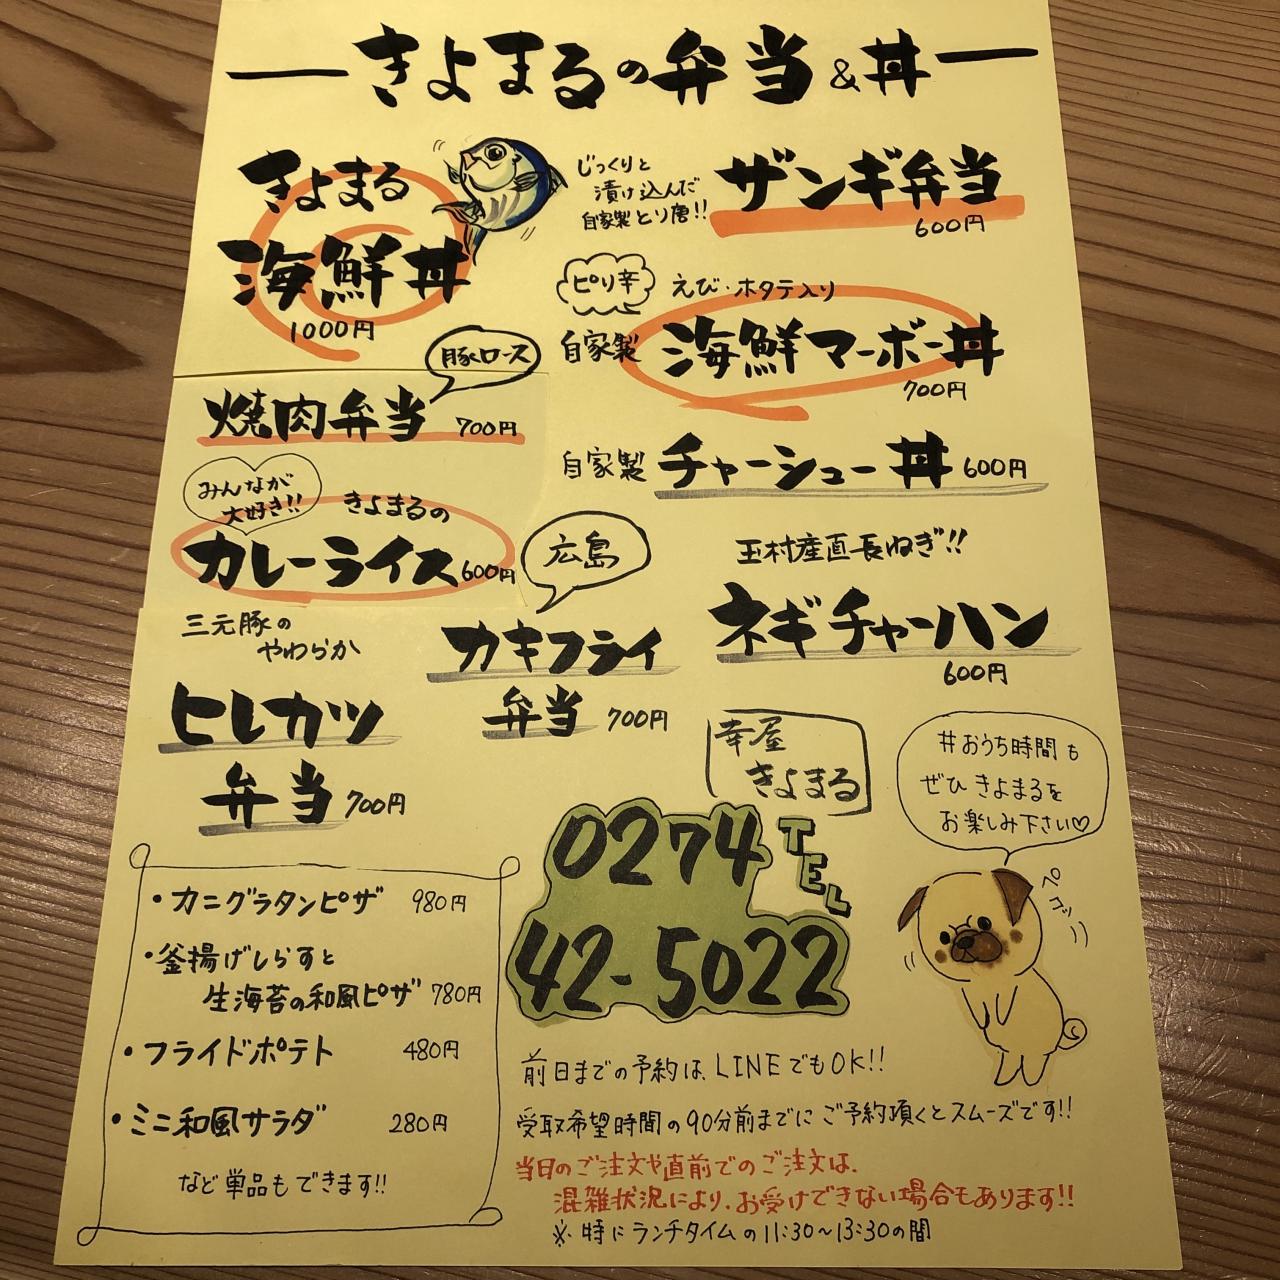 きよまるの弁当&丼
きよまる
海鮮丼
1000円
じっくりと
漬け込んだ
自家製とり唐!!
ザンギ弁当
600円
ピリ辛
えび・ホタテ入り
自家製
海鮮マーボー丼
700円
豚ロース
焼肉弁当 700円
自家製 チャーシュー丼 600円
みんなが
大好き!!
きよまるの
カレーライス 600円
広島
カキフライ
弁当 700円
玉村産直長ねぎ!!
ネギチャーハン
600円
三元豚の
やわらか
ヒレカツ
弁当 700円
幸屋
きよまる
TEL
0274
42-5022
#おうち時間も
ぜひきよまるを
お楽しみ下さい♡
ペコッ
・カニグラタンピザ 980円
・釜揚げしらすと
生海苔の和風ピザ 780円
・フライドポテト 480円
・ミニ和風サラダ 280円
など単品もできます!!
前日までの予約は、LINEでもOK!!
受取希望時間の90分前までにご予約頂くとスムーズです!!
当日のご注文や直前でのご注文は、
混雑状況により、お受けできない場合もあります!!
※特にランチタイムの11:30~13:30の間